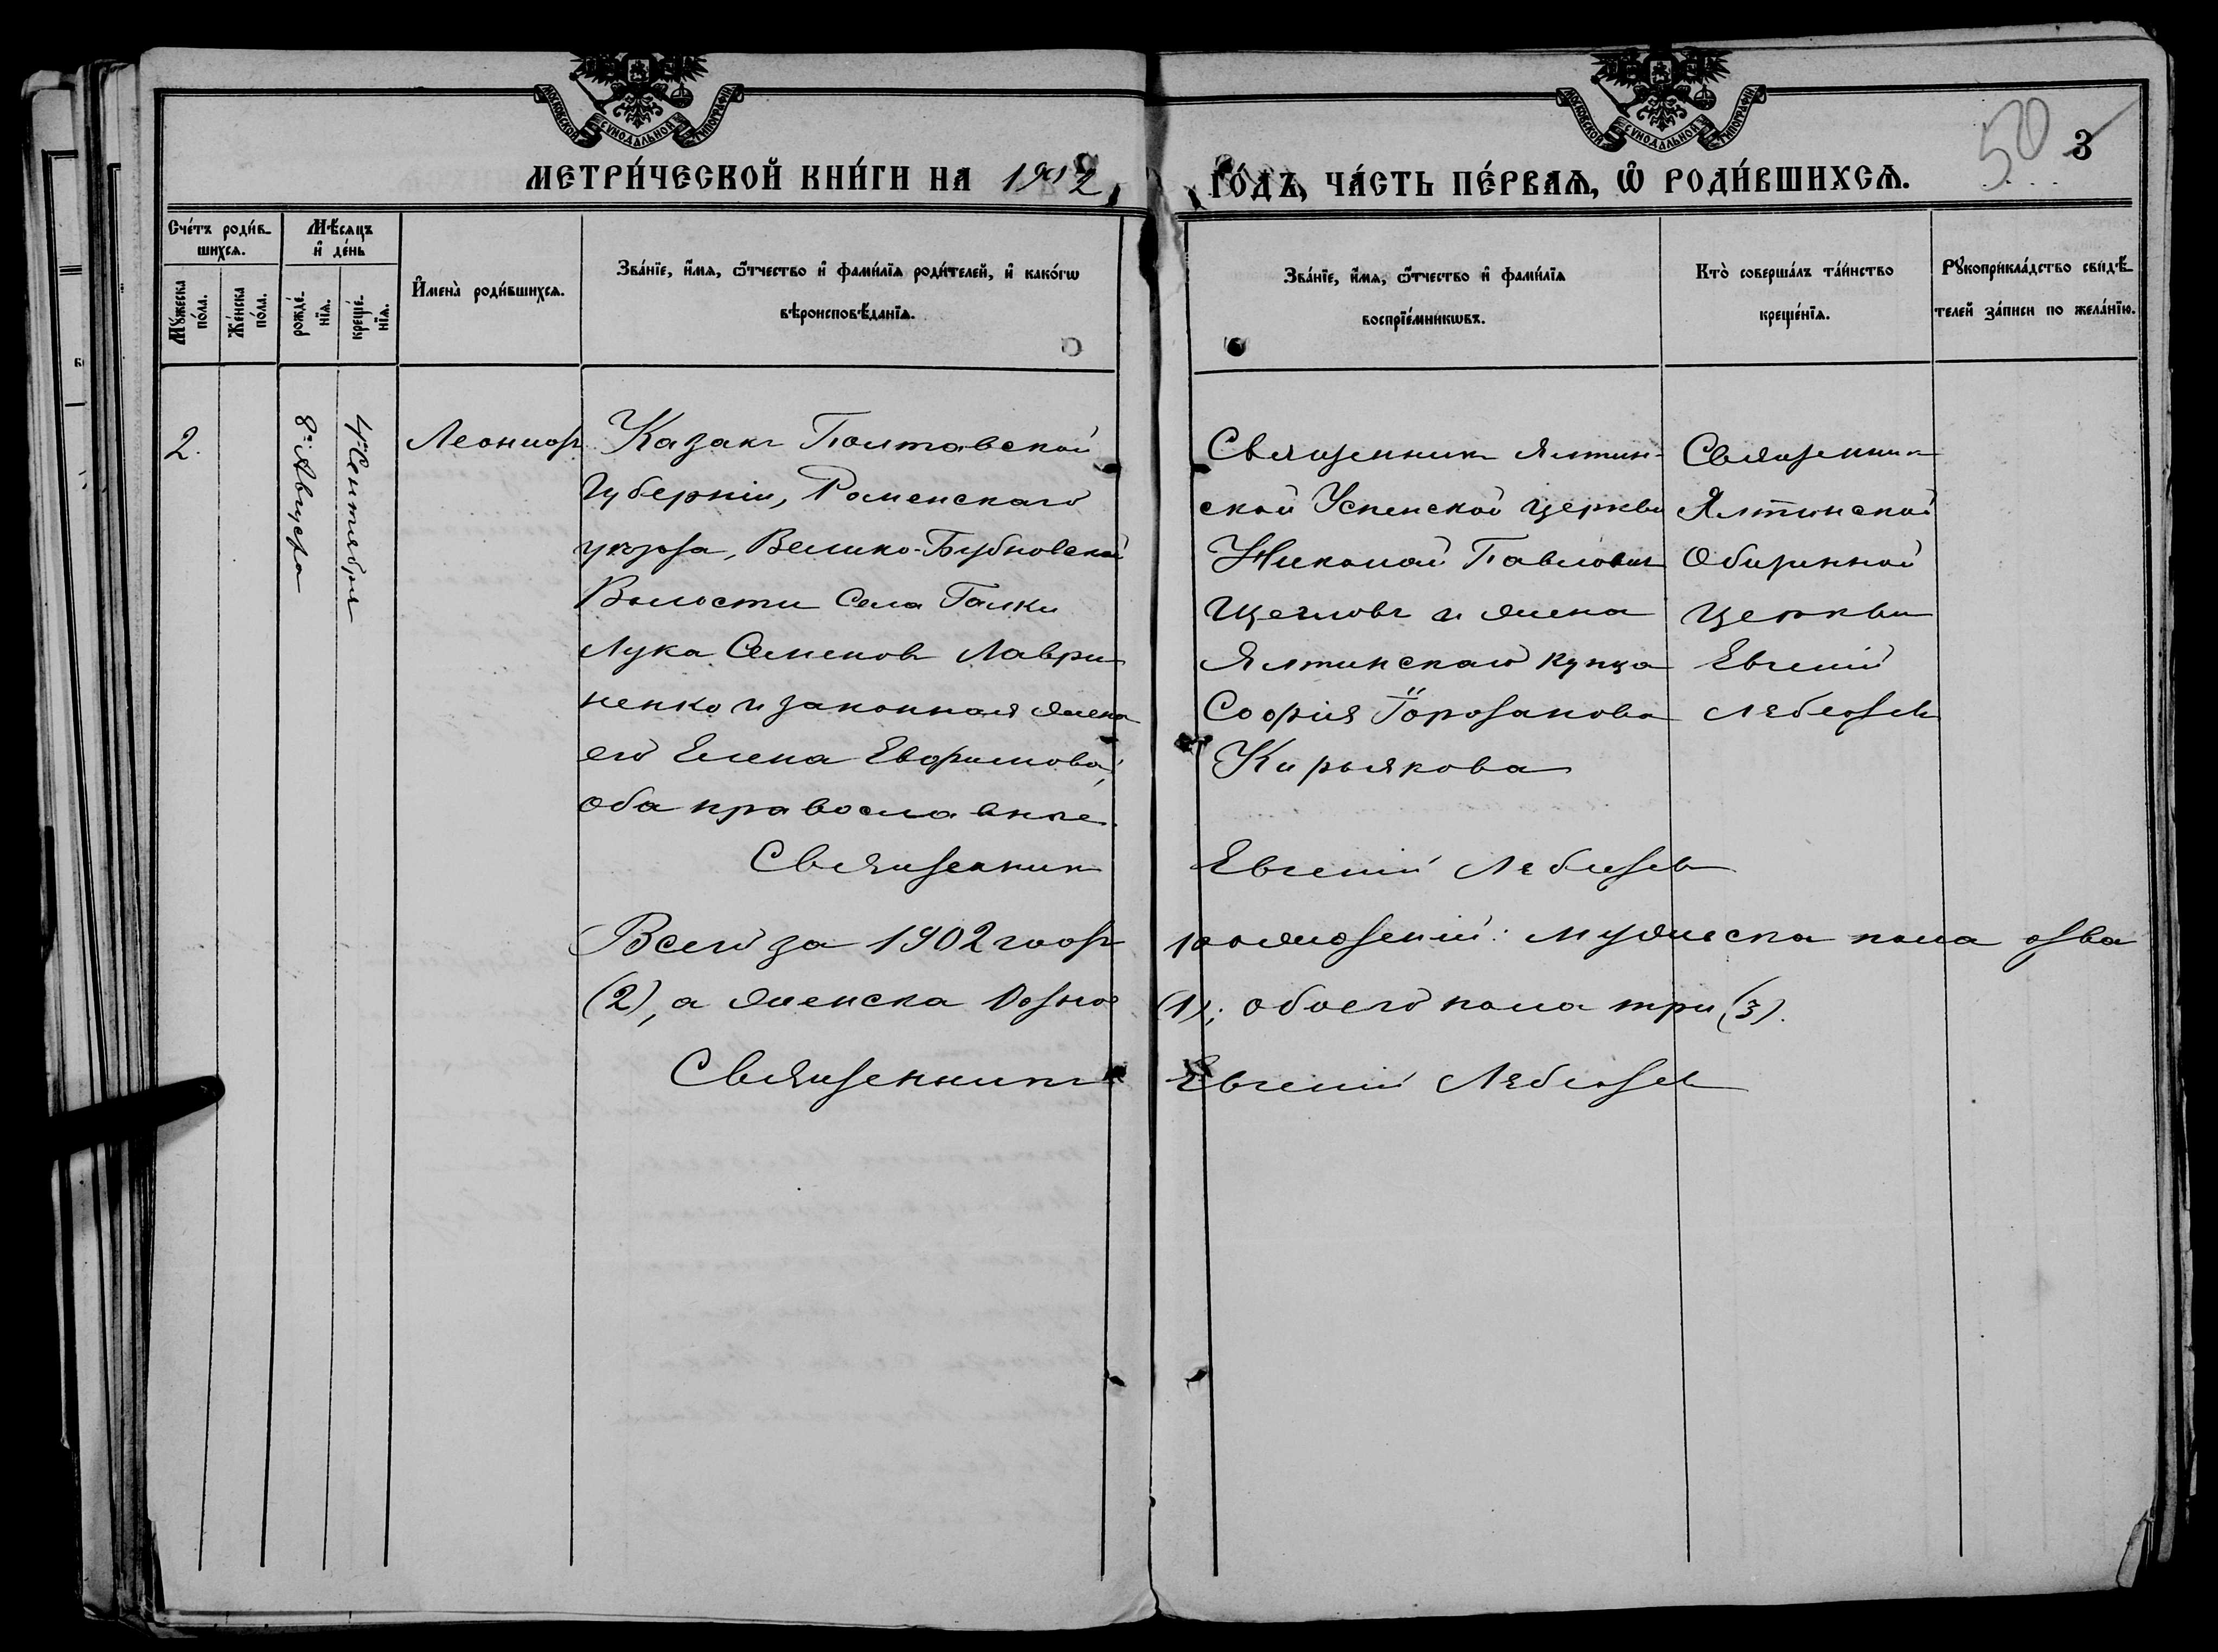 МОСКОВСКОЙ СѴНОДАЛЬНОЙ ТИПОГРАФІИ
МОСКОВСКОЙ СѴНОДАЛЬНОЙ ТИПОГРАФІИ
50
3
МЕТРИ́ЧЕСКОЙ КНИ́ГИ НА 1902
ГО́ДЪ, ЧА́СТЬ ПЕ́РВАѦ, Ѡ҆ РОДИ́ВШИХСѦ.
Сче́тъ роди́в-
шихсѧ.
Мꙋ́жеска
по́ла.
Же́нска
по́ла.
Мѣ́сѧцъ
и҆ де́нь
рожде́-
нїѧ.
креще́-
нїѧ.
И҆мена̀ роди́вшихсѧ.
Зва́нїе, и҆́мѧ, ѻ҆́тчество и҆ фами́лїѧ роди́телей, и҆ како́гѡ
вѣроисповѣ́данїѧ.
Зва́нїе, и҆́мѧ, ѻ҆́тчество и҆ фами́лїѧ
воспрїе́мникѡвъ.
Кто̀ соверша́лъ та́инство
креще́нїѧ.
Рꙋкоприкла́дство свидѣ́-
телей за́писи по жела́нїю.
2.
8го Августа
4го Сентября
Леонидъ
Казакъ Полтавской
Губерніи, Роменскаго
уѣзда, Велико-Бубновской
Волости Села Галки
Лука Семеновъ Лаври-
ненко и законная жена
его Елена Евфимова,
оба православные.
Священникъ
Священникъ Ялтин-
ской Успенской церкви
Николай Павловичъ
Щегловъ и жена
Ялтинскаго купца
София Гордѣанова
Кирьякова
Евгеній Лебедевъ
Священникъ
Ялтинской
Общинной
церкви
Евгеній
Лебедевъ
Всего за 1902 годъ рожденій: мужеска пола два
(2), а женска одно (1); обоего пола три (3).
Священникъ Евгеній Лебедевъ